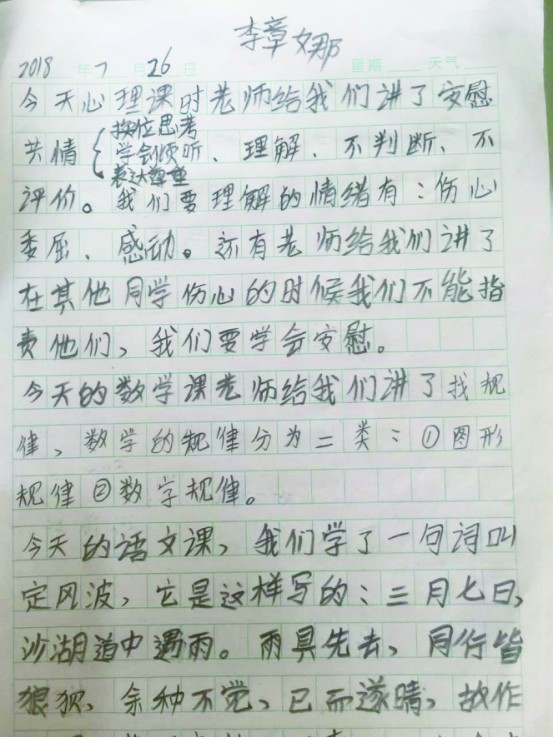 李章娜
2018年7月26日 星期 天气
今天心理课时老师给我们讲了安慰
换位思考
共情{学会倾听、理解、不判断、不
表达尊重
评价。我们要理解的情绪有：伤心
委屈、感动。还有老师给我们讲了
在其他同学伤心的时候我们不能指
责他们，我们要学会安慰。
今天的数学课老师给我们讲了找规
律，数学的规律分为二类：①图形
规律②数字规律。
今天的语文课，我们学了一句词叫
定风波，它是这样写的：三月七日，
沙湖道中遇雨。雨具先去，同行皆
狼狈，余种不觉，已而遂晴，故作